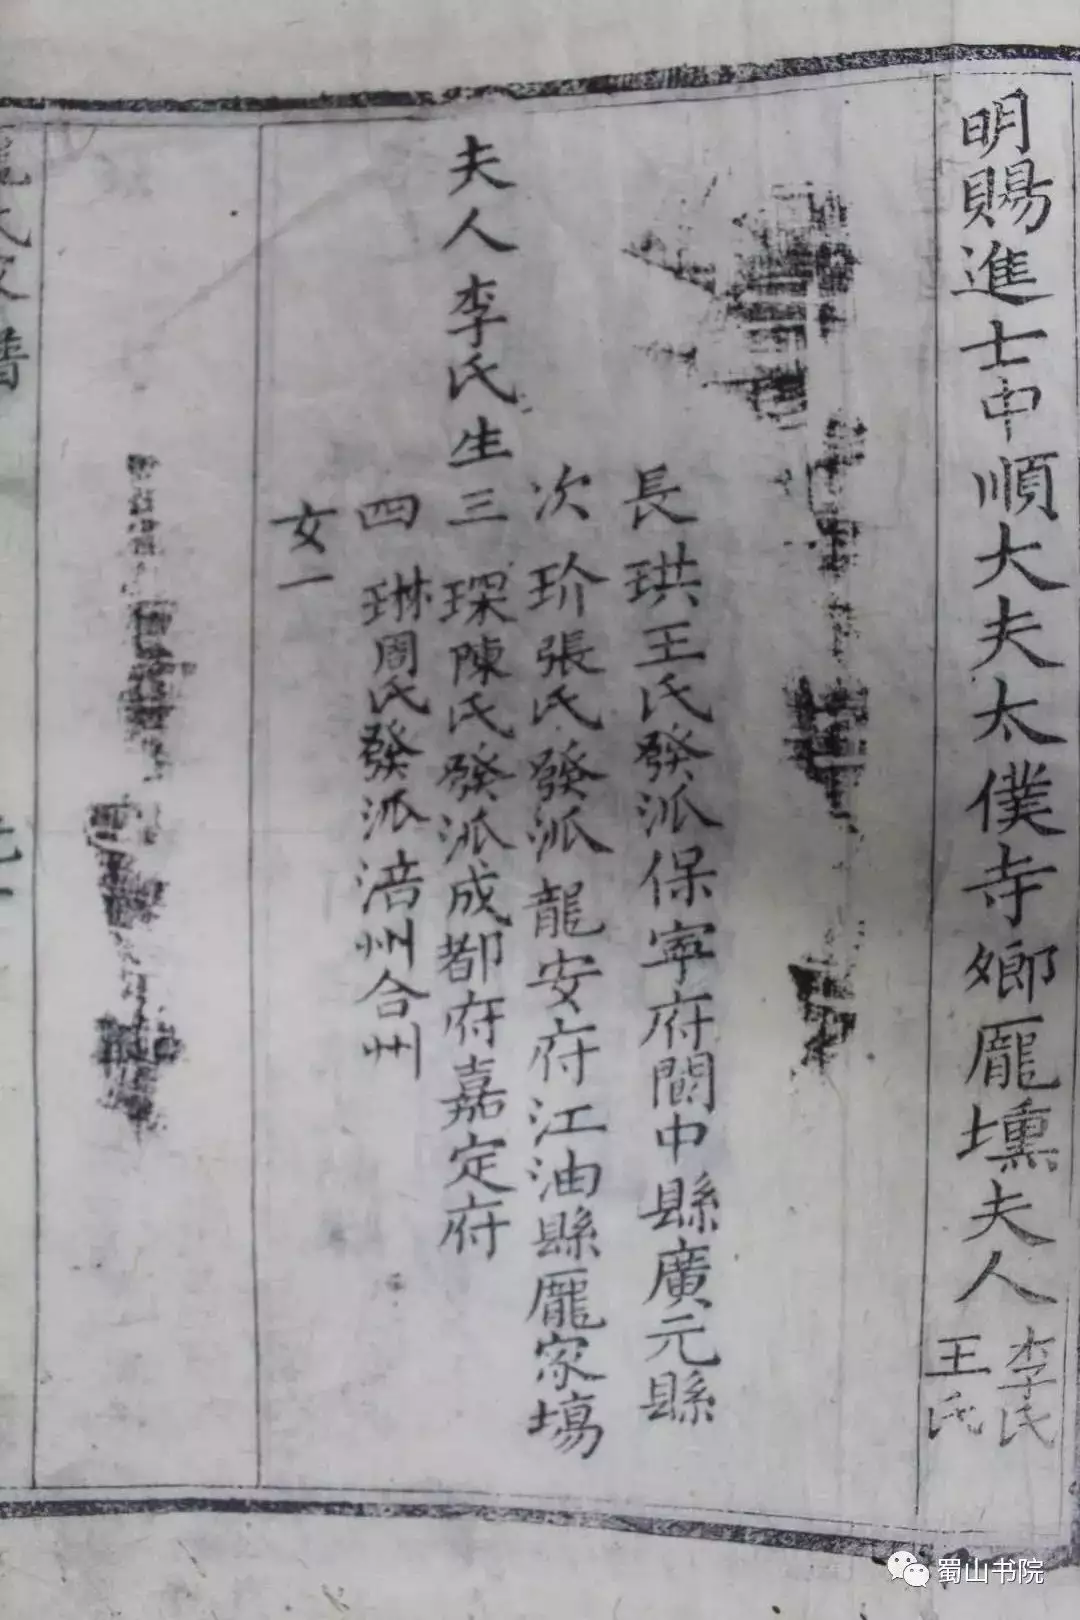 明賜進士中順大夫太僕寺鄉龎壎夫人李氏王氏
長珙王氏發派保寧府閬中縣廣元縣
次玠張氏發派龍安府江油縣龎家塲
夫人李氏生三琛陳氏發派成都府嘉定府
四琳周氏發派涪州合州
女一
氏家譜
蜀山书院